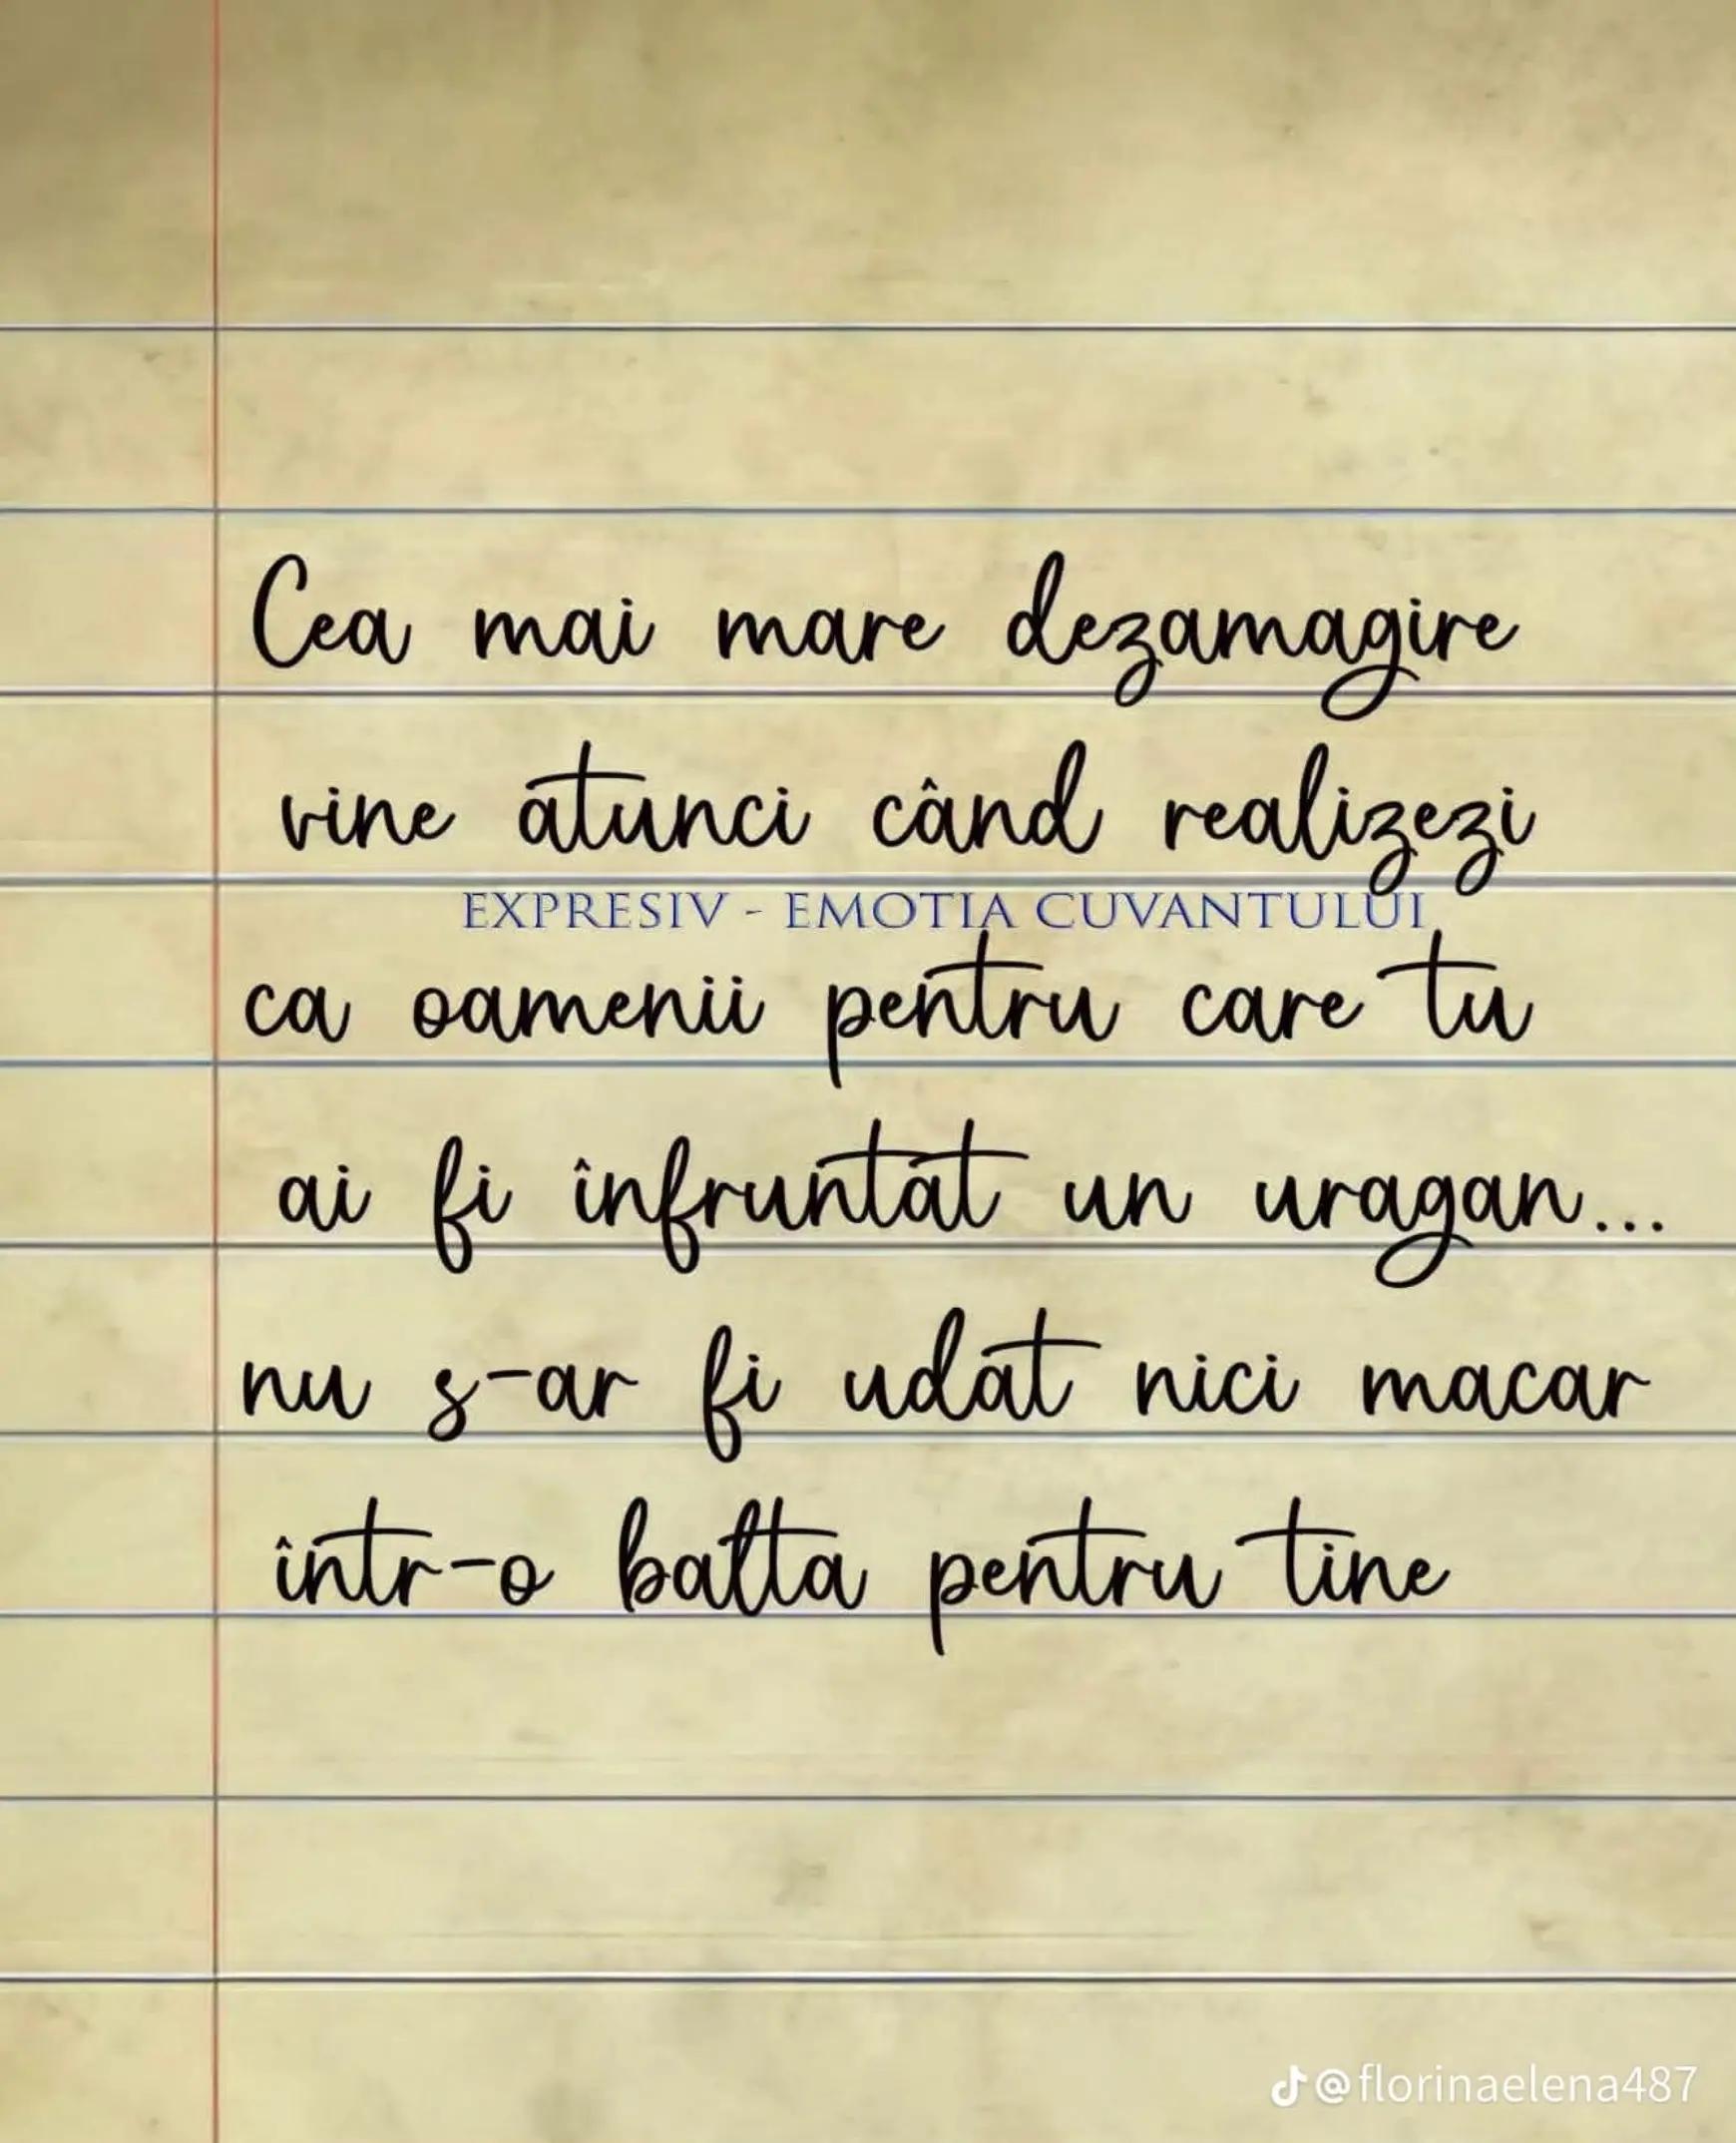 Cea mai mare dezamagire
vine atunci când realizezi
EXPRESIV - EMOTIA CUVANTULUI
ca oamenii pentru care tu
ai fi înfruntat un uragan...
nu s-ar fi udat nici macar
într-o balta pentru tine
@florinaelena487